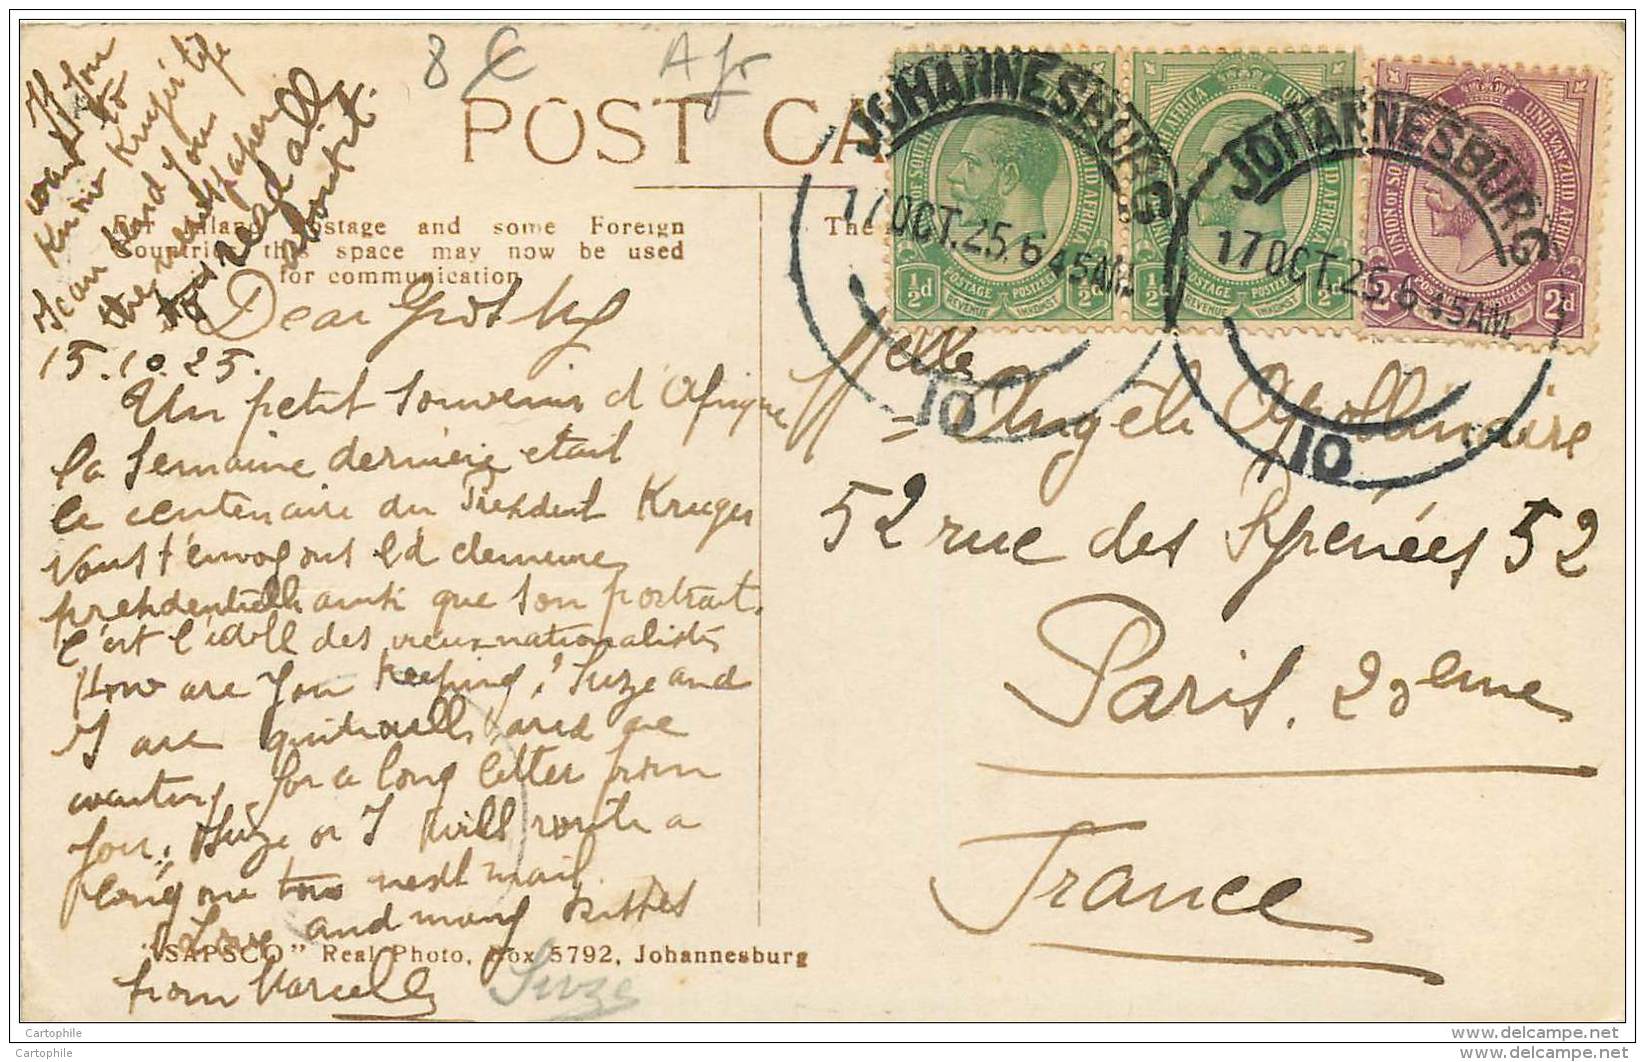 8 €
Afr
POST CA
For Inland Postage and some Foreign
Countries this space may now be used
for communication
The
If you
want to
know Kruger's life
I can send you
the newspaper
to read all
about it.
JOHANNESBURG
17 OCT. 25. 6 45AM
10
JOHANNESBURG
17 OCT. 25. 6 45AM
10
UNION OF SOUTH AFRICA
UNIE VAN ZUID AFRIKA
½d POSTAGE POSTZEGEL ½d
REVENUE INKOMST
½d POSTAGE POSTZEGEL ½d
REVENUE INKOMST
UNION OF SOUTH AFRICA
UNIE VAN ZUID AFRIKA
POSTAGE POSTZEGEL 2d
Dear
15.10.25.
Un petit souvenir d'Afrique
la semaine dernière etait
le centenaire du President Kruger
nous t'envoyons la demeure
presidentielle ainsi que son portrait.
C'est l'idole des vieux nationalists
How are you keeping, Suze and
I are quite well and are
waiting for a long letter from
you, Suze or I will write a
long one too next mail.
Love and many kisses
from Marcelle
Suze
"SAPSCO" Real Photo, Box 5792, Johannesburg
Melle Angèle Apollinaire
52 rue des Pyrénées 52
Paris. 20eme
France
Cartophile
Cartophile
www.delcampe.net
www.delcampe.net